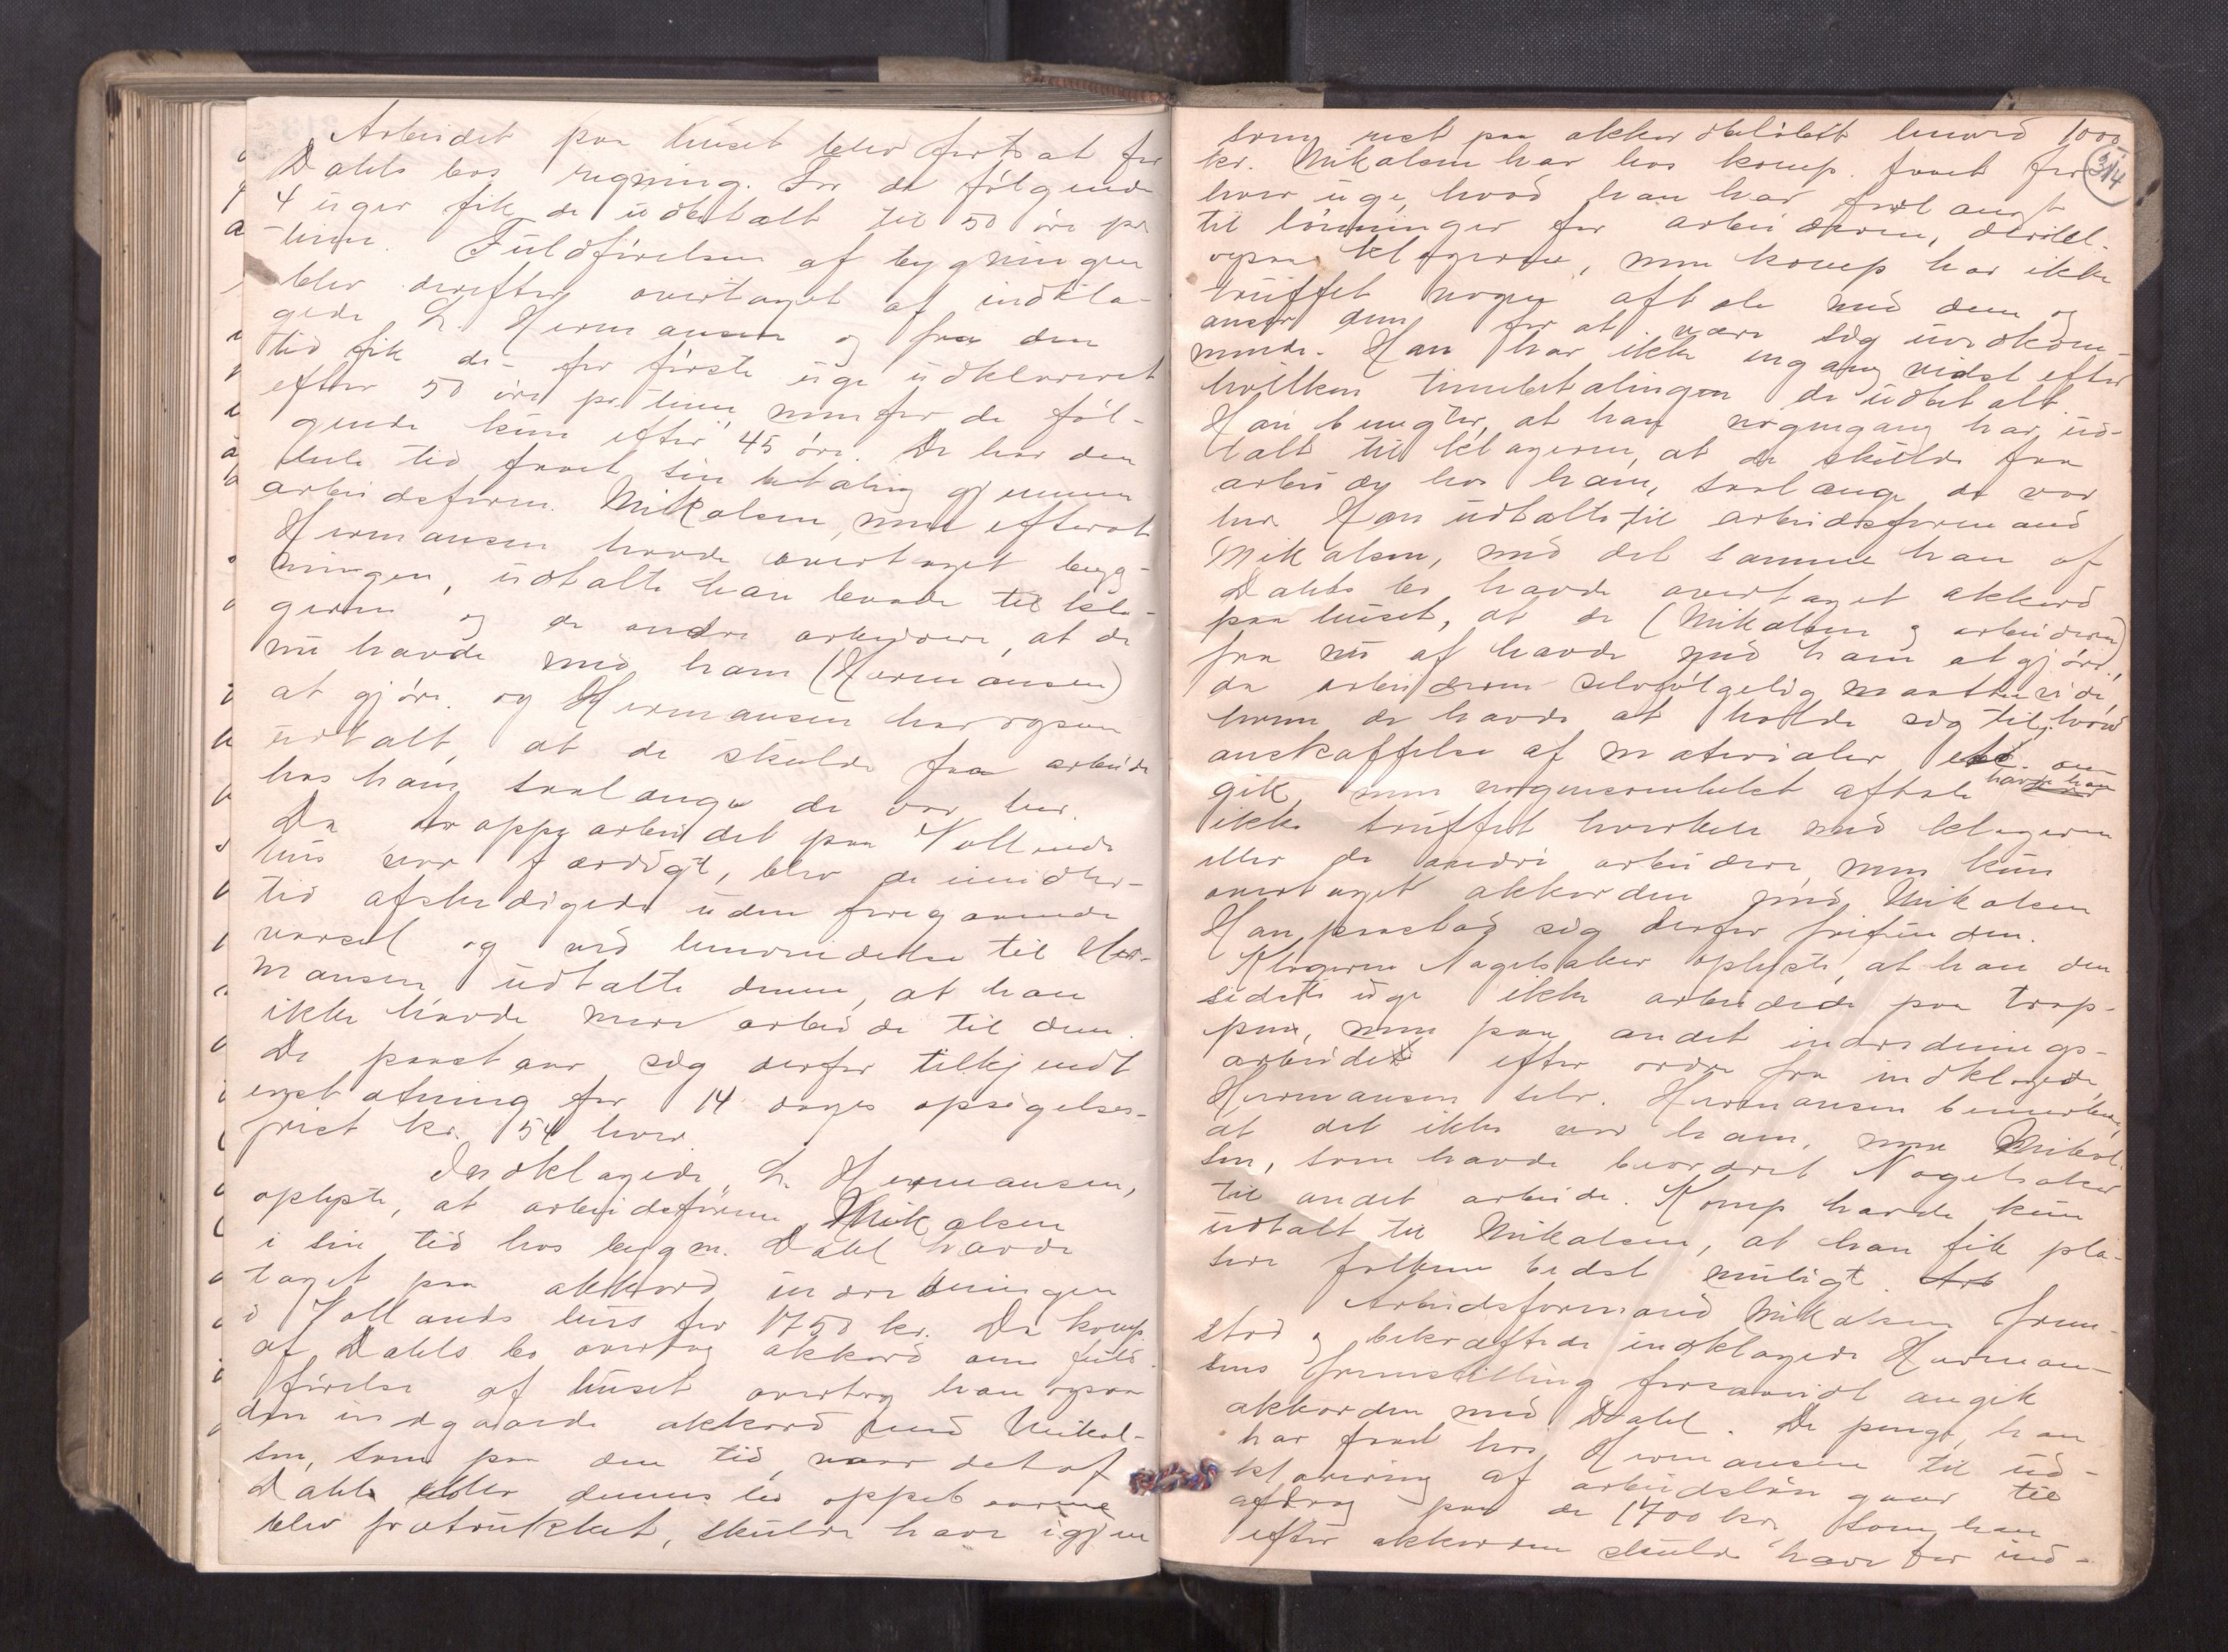 Arbeidet paa huset blev fortsat for
Dahls bos regning. For de følgende
4 uger fik de udbetalt til 50 øre pr
time. Fuldførelsen af bygningen
blev derefter overtaget af indkla-
gede L. Hermansen og fra den
tid fik de for første uge udkloreret
efter 50 øre pr time, men for de føl-
gende kun efter 45 øre. De har den
hele tid faaet sin betaling gjennem
arbeidsform. Mikalsen, men efterat
Hermansen havde overtaget byg-
ningen, udtalte han baade til kla-
gerne og de andre arbeidere, at de
nu havde med ham (Hermansen)
at gjøre og Hermansen har ogsaa
udtalt, at de skulde faa arbeide
hos ham saalænge de var her.
Da trappearbeidet paa Vollands
hus var færdigt, blev de imidler-
tid afskedigede uden foregaaende
varsel og ved henvendelse til Her-
mansen udtalte denne, at han
ikke havde mere arbeide til dem.
De paastaar sig derfor tilkjendt
erstatning for 14 dages opsigelses-
frist kr. 54 hver.
Indklagede, L. Hermansen,
oplyste, at arbeidsform. Mikalsen
i sin tid hos bygm. Dahl havde
taget paa akkord indredningen
i Vollands hus for 1750 kr. Da komp.
af Dahls bo overtog akkord om fuld-
førelse af huset overtog han ogsaa
den indgaaede akkord med Mikal-
sen, som paa den tid, naar det af
Dahl eller dennes bo oppebaarne
blev fratrukket, skulde have igjen
som rest paa akkordbeløbet henved 1000
314
kr. Mikalsen har hos komp. faaet for
hver uge, hvad han har forlangt
til lønninger for arbeiderne, deribl.
ogsaa klagerne, men komp har ikke
truffet nogen aftale med dem og
anser dem for at være sig uvedkom-
mende. Han har ikke engang vidst efter
hvilken timebetalingen de udbetalt.
Han benegter, at han nogengang har ud-
talt til klagerne, at de skulde faa
arbeide hos ham, saalænge de var
her. Han udtalte til arbeidsformand
Mikalsen, med det samme han af
Dahls bo havde overtaget akkord
paa huset, at de (Mikalsen og arbeiderne)
fra nu af havde med ham at gjøre,
da arbeiderne selvfølgelig maatte vide
hvem de havde at holde sig til, hvad
anskaffelse af materialer etc. an-
gik, men nogensomhelst aftale har han
ikke truffet hverken med klagerne
eller de andre arbeidere, men kun
overtaget akkorden med Mikalsen
Han paastod sig derfor frifunden.
Klageren Nagelsaker oplyste, at han den
sidste uge ikke arbeidede paa trap-
pen, men paa andet indrednings-
arbeide efter ordre fra indklagede
Hermansen selv. Hermansen bemerkede,
at det ikke var ham, men Mikal-
sen, som havde beordret Nagelsaker
til andet arbeide. Komp havde kun
udtalt til Mikalsen, at han fik pla-
sere folkene bedst muligt. Arb
Arbeidsformand Mikalsen frem-
stod og bekræftede indklagede Herman-
sens fremstilling forsaavidt angik
akkorden med Dahl. De penge, han
har faaet hos Hermansen til ud-
klarering af arbeidsløn gaar til
afdrag paa de 1700 kr. som han
efter akkorden skulde have for ind-